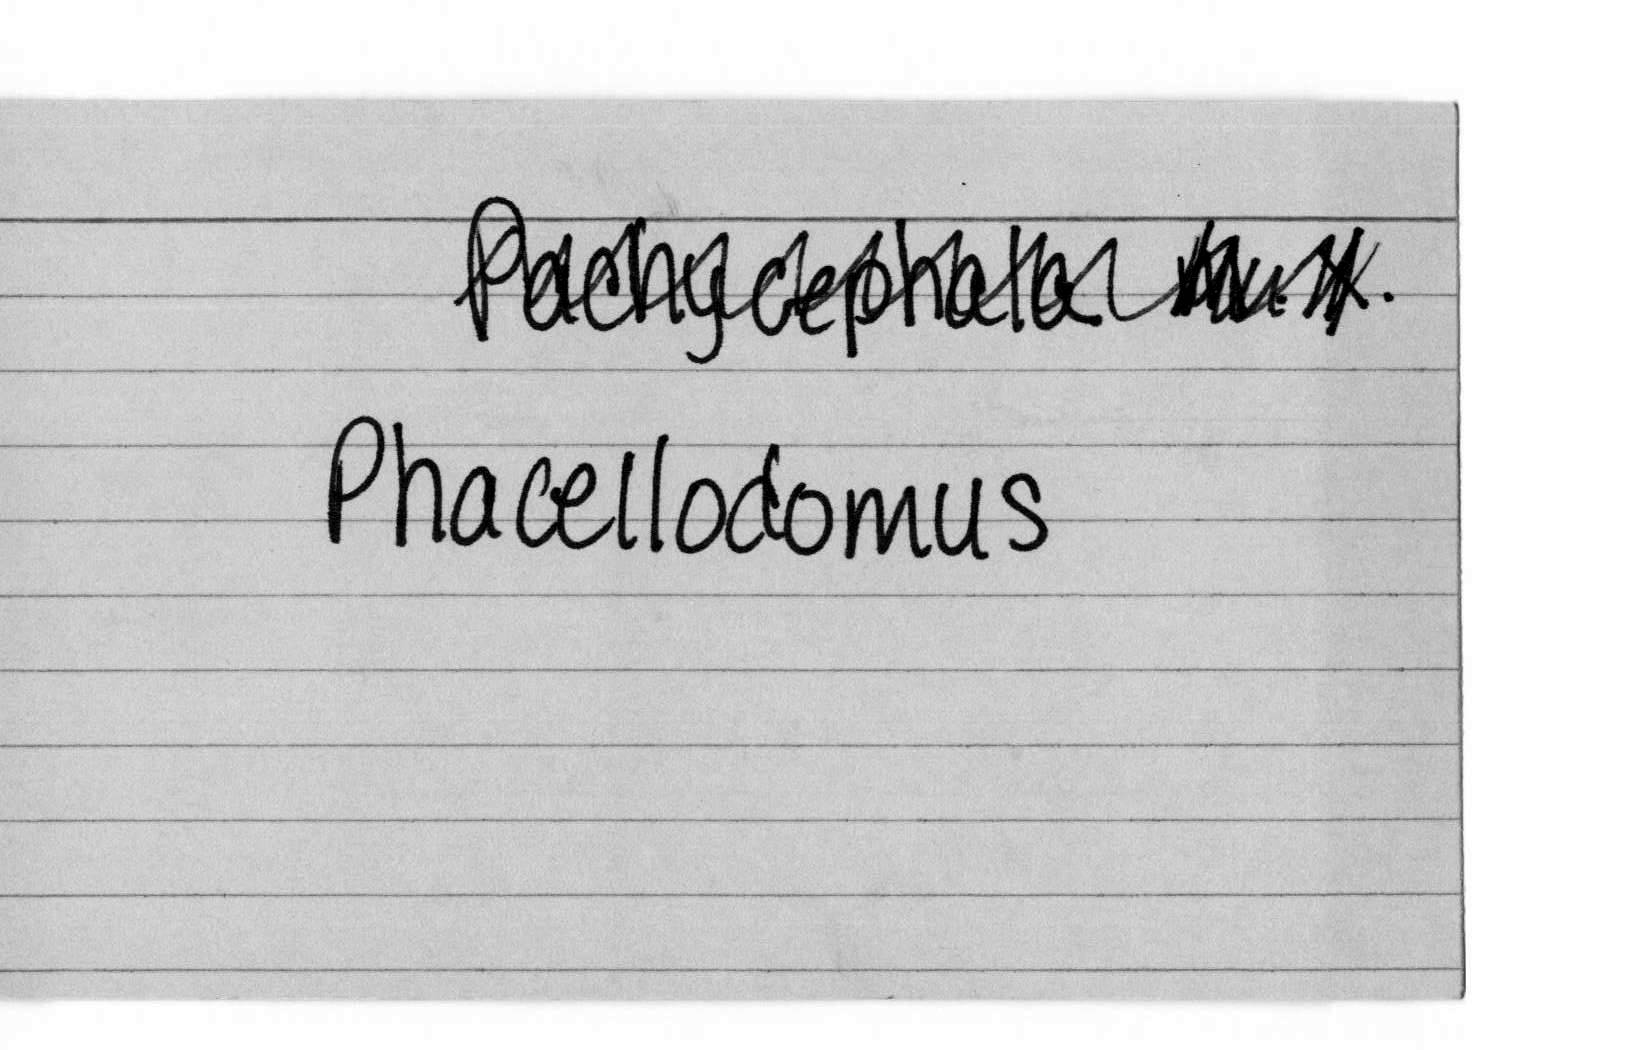 Pachycephala
Phacellodomus